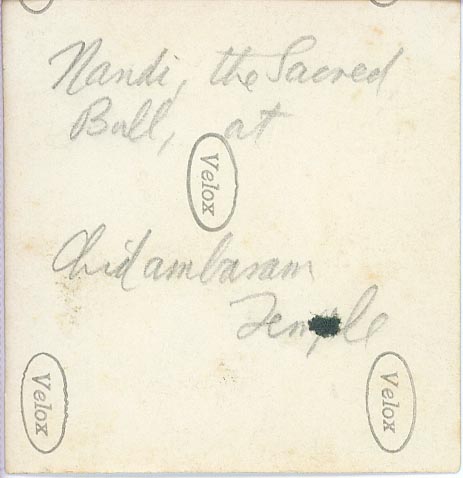 Nandi, the Sacred
Bull, at
Velox
Chidambaram
Temple
Velox
Velox